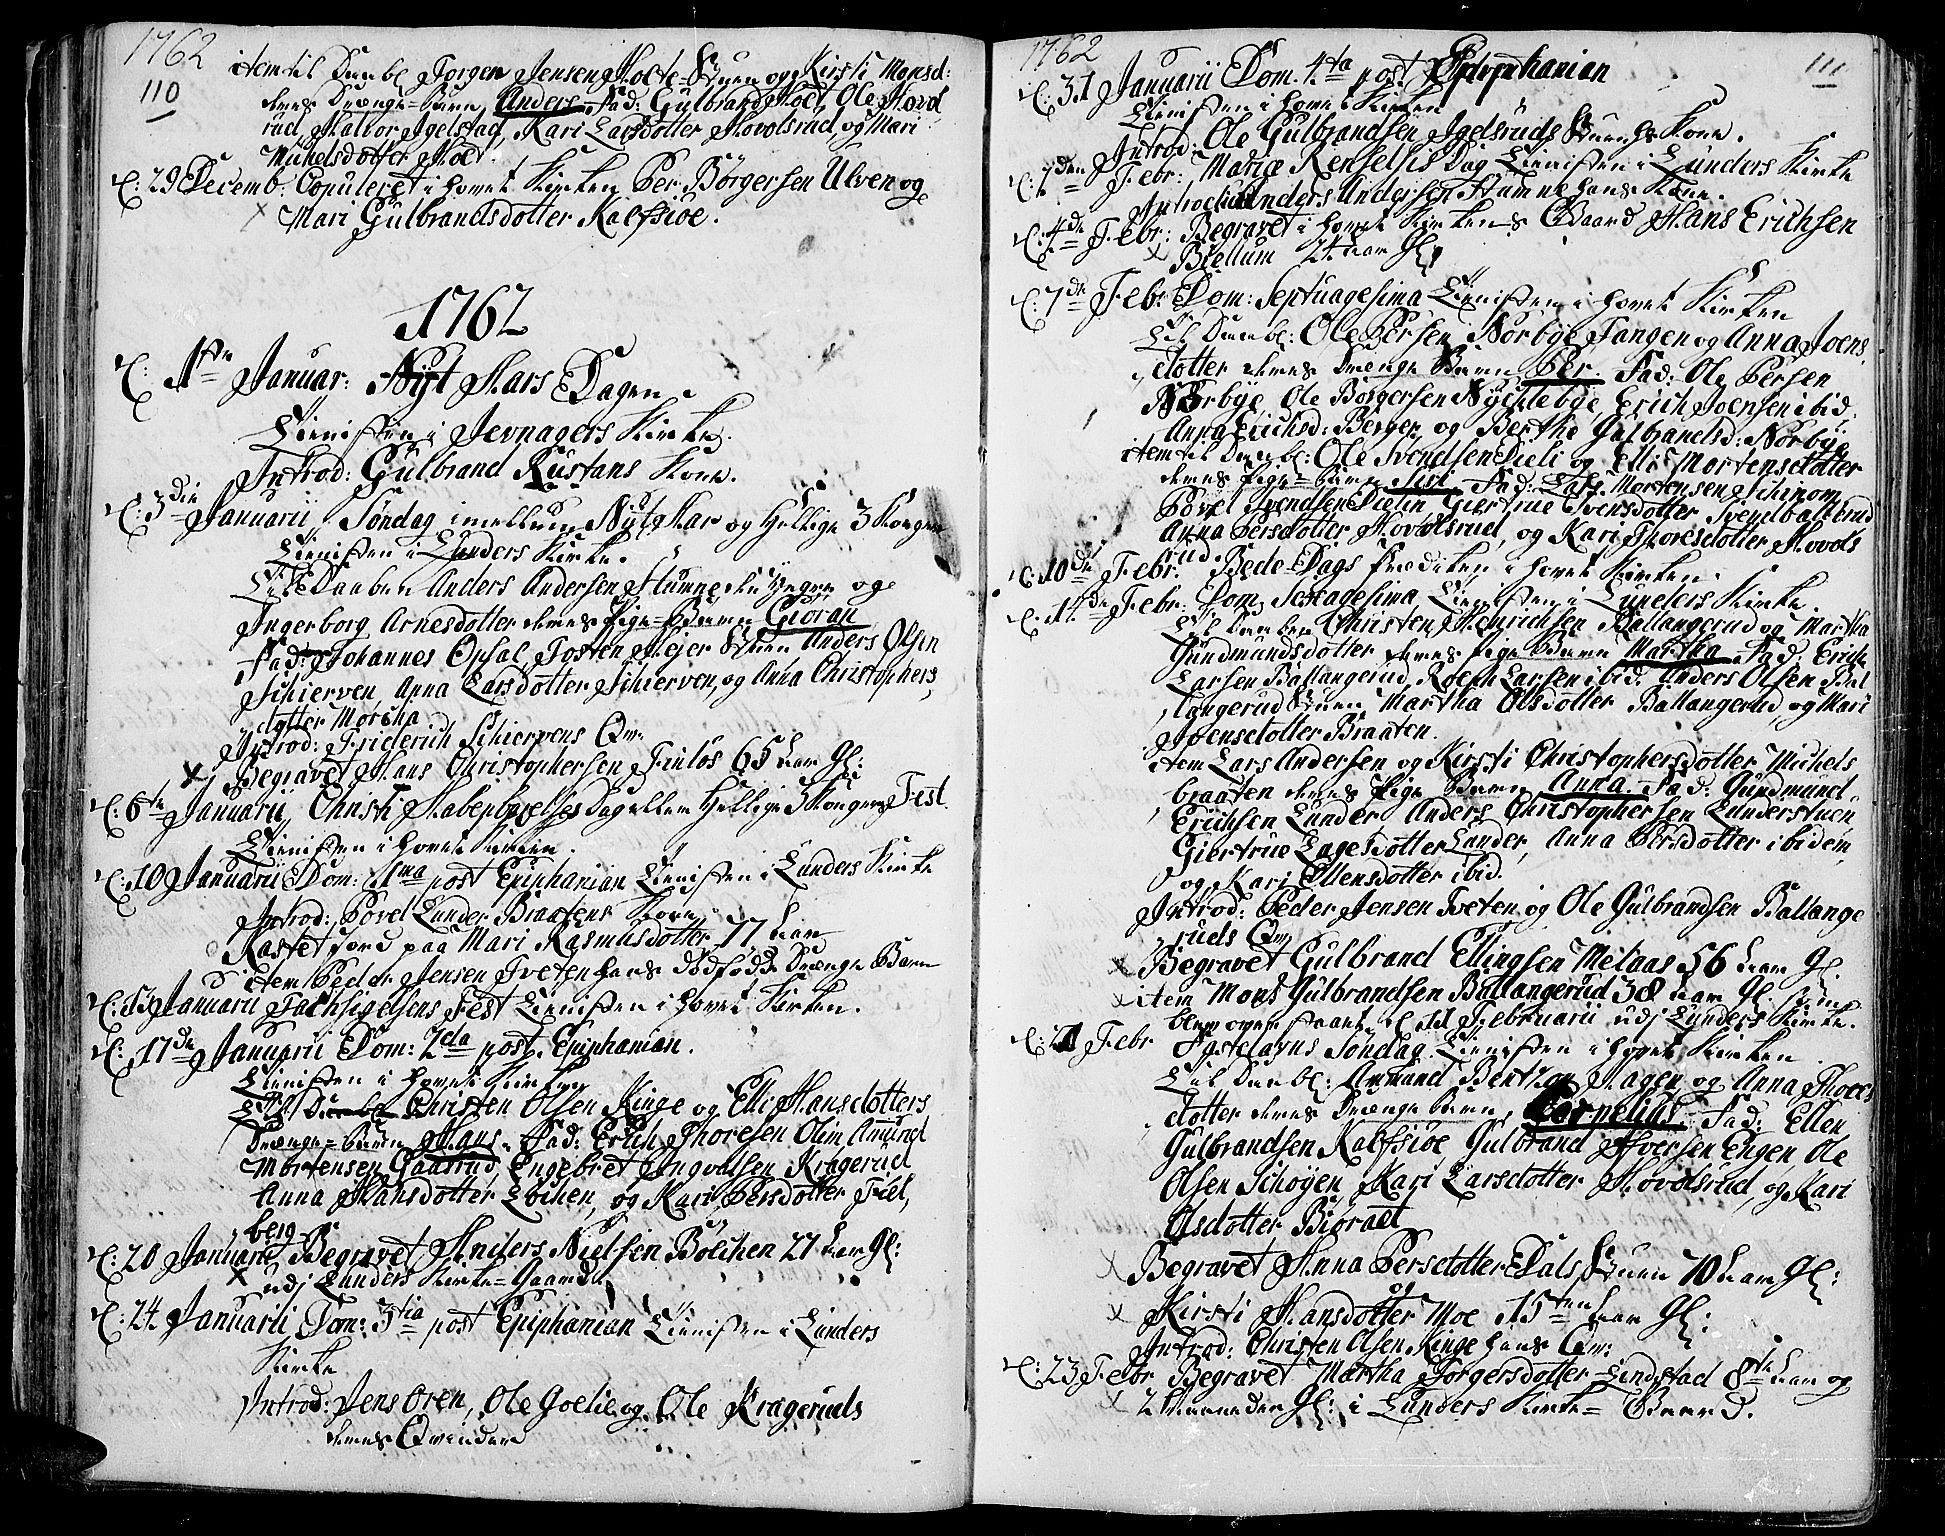 1762
110
item til Daab: Torgen Jensen Holte-Stuen og Kirsti Monsd:
deres Drænge-Barn Anders. Fad: Gulbrand Holt, Ole Hovol
rud, Halvor Igelstad, Kari Larsdotter Hovolsrud, og Mari
Michelsdotter Holt.
d: 29 Decemb: Copuleret i Hovet Kirken Per Börgersen Ulven og
Mari Gulbrandsdotter Kalfsiöe.
1762
d: 1ste Januar: Nyt Aars Dagen
Tienisten i Jevnagers Kirke.
Introd: Gulbrand Rustans Kone.
d: 3die Januarii, Söndag imellum Nyt Aar og Hellige 3 Konger
Tienisten i Lunders Kirke.
Til Daaben Anders Andersen Stumne den Yngre og
Ingerborg Arnesdotter deres Pige-Barn Giöran
Fad: Johannes Opsal, Tosten Mejer Stuen Anders Olsen
Schierven, Anna Larsdotter Schierven, og Anna Christophers
dotter Morcha
Introd: Friderich Schiervens Qv:
Begravet Hans Christophersen Finlös 65 Aar Gl:
d: 6te Januarii, Christi Aabenbarelses Dag eller Hellige 3 Kongers Fest
Tienisten i Hovet Kirken.
d: 10 Januarii Dom: 1ma post Epiphanian Tienisten i Lunders Kirke
Introd: Povel Lunder Braatens Kone
Kastet Jord paa Mari Rasmusdotter 77 Aar
item Peder Jensen Tveten hans dödfödde Drænge Barn
d: 15 Januarii Tachsigelsens Fest Tienisten i Hovet Kirken.
d: 17de Januarii Dom: 2da post Epiphanian.
Tienisten i Hovet Kirken
Til Daaben Christen Olsen Kinge og Elli Hansdotters
Drænge-Barn Hans. Fad: Erich Thoresen Olim Amund
Mortensen Gaasrud, Engebret Ingvolsen Kragerud
Anna Hansdotter Löchen, og Kari Persdotter Fiel,
berg
d: 20 Januarii Begravet Anders Nielsen Bölchen 27 Aar Gl:
udj Lunders Kirke-Gaard
d: 24 Januarii Dom: 3tia post Epiphanian Tienisten i Lunders
Kirke
Introd: Jens Oren, Ole Goelie og Ole Krageruds
deres Qvinder
1762
111
d: 31 Januarii Dom. 4ta post Epiphanian
Tienisten i Hovet Kirken
Introd: Ole Gulbrandsen Igelsruds Stuen hs Kone.
d: 2den Febr: Mariæ Renselsis Dag Tienisten i Lunders Kirke
Introd: Anders Andersen Stumne hans Kone.
d: 4de Febr: Begravet i Hovet Kirkens Gaard Hans Erichsen
Biellum 24 Aar Gl:
d: 7de Febr: Dom: Septuagesima Tienisten i Hovet Kirken
Til Daab: Ole Persen Norbye Tangen og Anna Joens
dotter deres Drænge Barn Per. Fad: Ole Persen
Norbye Ole Börgersen Nychlebye, Erich Joensen ibid.
Anna Erichsd: Bergen og Berthe Gulbrandsd: Norbye
item til Daab: Ole Svendsen Dieli og Elli Mortensdotter
deres Pige-Barn Siri Fad: Lars Mortensen Schinom
Povel Svendsen Dielin Giertrue Svensdotter Svendballerud
Anna Persdotter Hovolsrud, og Kari Thoresdotter Hovols
rud.
d: 10de Febr: Bede-Dags Prædiken i Hovet Kirken
d: 14de Febr: Dom, Sexagesima Tienisten i Lunders Kirke.
Til Daaben Christen Henrichsen Ballangerud og Martha
Gundmundsdotter deres Pige Barn Martha Fad. Erich
Larsen Ballangerud, Roen Larsen ibid. Anders Olsen Bal
langerud Stuen Martha Olsdotter Ballangerud, og Mari
Joensdotter Braaten.
item Lars Andersen og Kirsti Christophersdotter Michels
braaten deres Pige Barn Anna. Fad: Gundmund
Erichsen Lunder Anders Christophersen Lunderstuen
Giertrue Lagesdotter Lunder, Anna Persdotter ibidem,
og Kari Ellensdotter ibid.
Introd: Peder Jensen Tveten og Ole Gulbrandsen Ballange
ruds Qv:
Begravet Gulbrand Ellingsen Melaas 56 Aar Gl.
item Mons Gulbrandsen Ballangerud 38 Aar Gl.
d 11 Februarii udj Lunders Kirke.
d: 21 Febr Fastelavns Söndag. Tienisten i Hovet Kirken
Til Daab: Ammand Bentzon Hagen og Anna Thores
dotter deres Drænge Barn, Cornelius. Fad: Ellen
Gulbrandsen Kalfsiöe, Gulbrand Iversen Engen Ole
Olsen Schöyen Kari Larsdotter Hovolsrud, og Kari
Olsdotter Biöraet
Begravet Anna Persdotter Dals Stuen 70 Aar Gl:
Kirsti Hansdotter Moe 15ten Aar Gl:
Introd: Christen Olsen Kinge hans Qv:
d: 23 Febr Begravet Martha Torgersdotter Lindstad 8te Aar og
2 Maaneder Gl: i Lunders Kirke-Gaard.